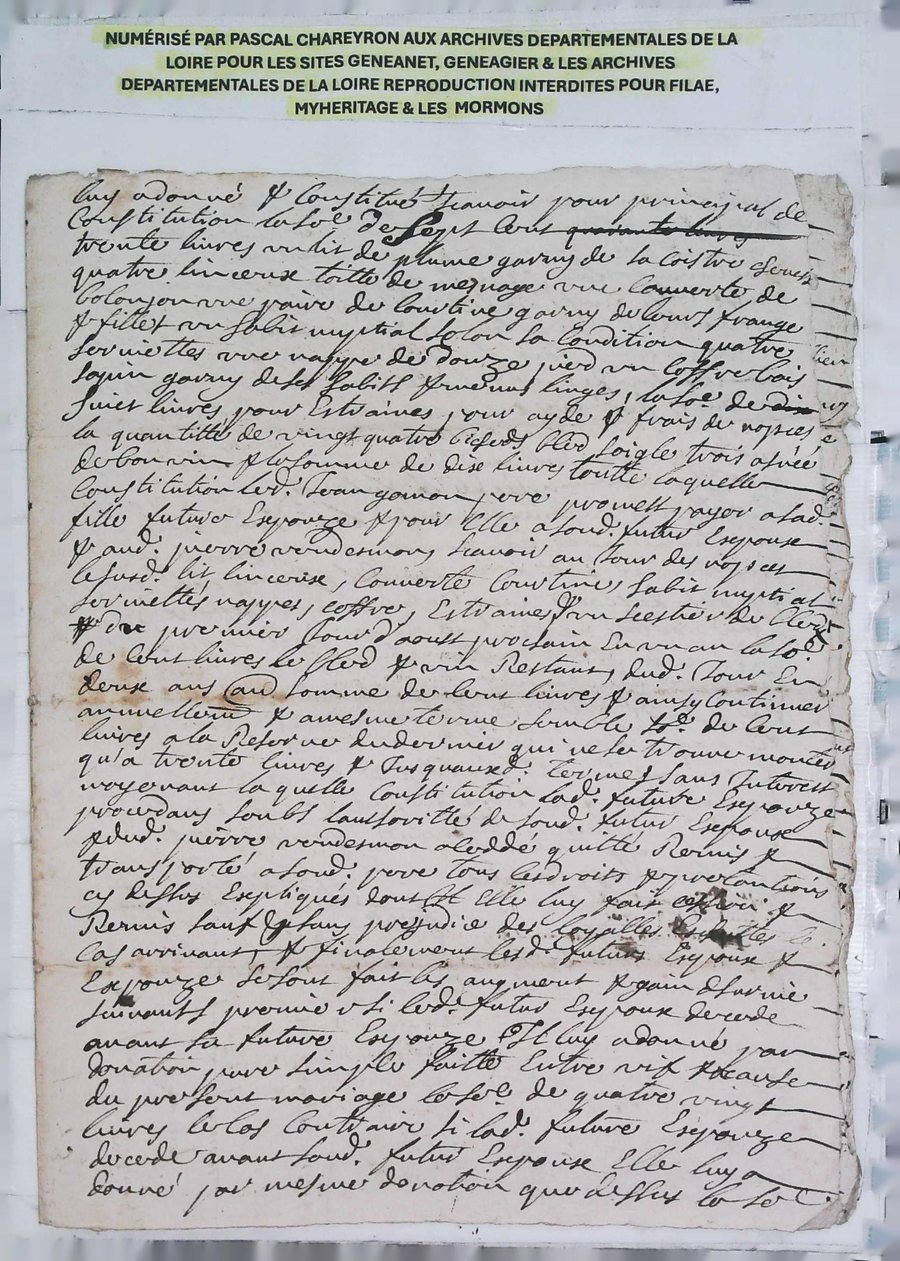 NUMÉRISÉ PAR PASCAL CHAREYRON AUX ARCHIVES DEPARTEMENTALES DE LA
LOIRE POUR LES SITES GENEANET, GENEAGIER & LES ARCHIVES
DEPARTEMENTALES DE LA LOIRE REPRODUCTION INTERDITES POUR FILAE,
MYHERITAGE & LES MORMONS
luy a donné & Constitué scavoir pour principal de
Constitution la so.e de Sept Cent quarante livres
trente livres un lit de plume garny de sa Coistre
quatre linceux toille de menage une Couverte de
une paire de Courtine garny de leurs frange
& fillet un habit nuptial selon sa Condition quatre
serviettes une nappe de douze pied un Coffre bois
sapin garny de ses habits & menus linges, la so.e de dix
huict livres pour Estraines pour ayde & frais de nopces
la quantitté de vingt quatre bled soigle trois asnée
de bon vin & la somme de dix livres toutte laquelle
Constitution led. Jean pere promett payer a sad.
fille future Espouze & pour Elle a sond. futur Espoux
& aud. pierre vendesmon, scavoir au Jour des nopces
le susd. lit, linceux, Couverte Courtine, habit nuptial
serviettes nappes, coffre, Estraines & un de bled
& du premier Jour d'aoust prochain En un an la so.e
de Cent livres le bled & vin Restant, dud. Jour En
deux ans au somme de Cent livres & ainsy Continuer
annuellem.t & a mesme terme semble so.e de Cent
livres a la Reserve du dernier qui ne se trouve monter
qu'a trente livres & Jusquausd. termes sans Interest
moyenant laquelle Constitution lad. future Espouze
procedans soubs lauthorité de sond. futur Espoux
& dud. pierre vendesmon a Ceddé quitté Remis &
transporté a sond. pere tous lesdroits & pretantions
cy dessus Expliqués dont Elle luy fait &
Remis sauf & sans prejudice des loyalles
Cas arrivant, & finalement lesd. futurs Espoux &
Espouze se sont fait les augment & gain de survie
suivants premier si led. futur Espoux decede
avant sa future Espouze Il luy a donné par
donation pure simple faitte Entre vif & a cause
du present mariage la so.e de quatre vingt
livres le Cas Contraire si lad. future Espouze
decede avant sond. futur Espoux Elle luy a
donné par mesme donation que dessus la so.e